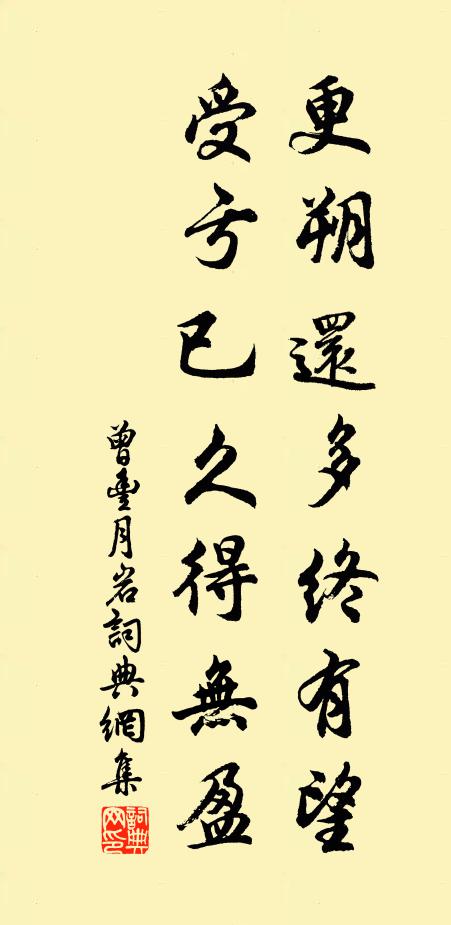 更朔還多終有望
受亏已久得無盈
曾豐月岩詞典網集
詞典網印